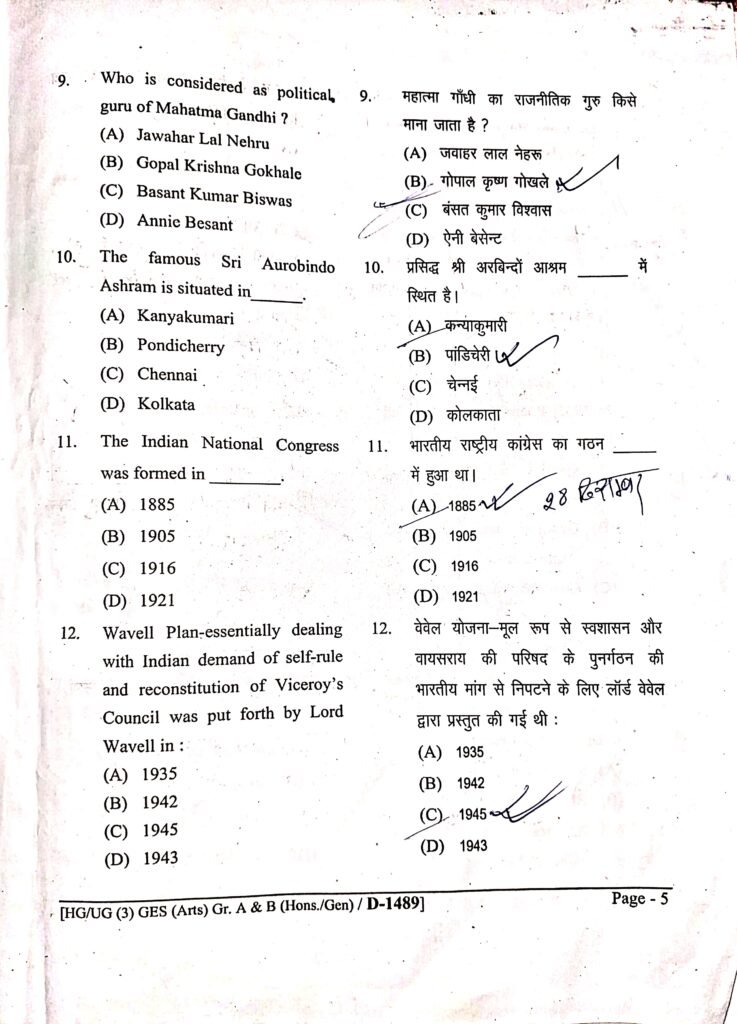 9. Who is considered as political
guru of Mahatma Gandhi ?
(A) Jawahar Lal Nehru
(B) Gopal Krishna Gokhale
(C) Basant Kumar Biswas
(D) Annie Besant
10. The famous Sri Aurobindo
Ashram is situated in______.
(A) Kanyakumari
(B) Pondicherry
(C) Chennai
(D) Kolkata
11. The Indian National Congress
was formed in ________.
(A) 1885
(B) 1905
(C) 1916
(D) 1921
12. Wavell Plan-essentially dealing
with Indian demand of self-rule
and reconstitution of Viceroy's
Council was put forth by Lord
Wavell in :
(A) 1935
(B) 1942
(C) 1945
(D) 1943
9. महात्मा गाँधी का राजनीतिक गुरु किसे
माना जाता है ?
(A) जवाहर लाल नेहरू
(B) गोपाल कृष्ण गोखले
(C) बंसत कुमार विश्वास
(D) ऐनी बेसेन्ट
10. प्रसिद्ध श्री अरबिन्दों आश्रम ______ में
स्थित है।
(A) कन्याकुमारी
(B) पांडिचेरी
(C) चेन्नई
(D) कोलकाता
11. भारतीय राष्ट्रीय कांग्रेस का गठन _____
में हुआ था।
(A) 1885 28 दिसम्बर
(B) 1905
(C) 1916
(D) 1921
12. वेवेल योजना–मूल रूप से स्वशासन और
वायसराय की परिषद के पुनर्गठन की
भारतीय मांग से निपटने के लिए लॉर्ड वेवेल
द्वारा प्रस्तुत की गई थी :
(A) 1935
(B) 1942
(C) 1945
(D) 1943
[HG/UG (3) GES (Arts) Gr. A & B (Hons./Gen) / D-1489]
Page - 5